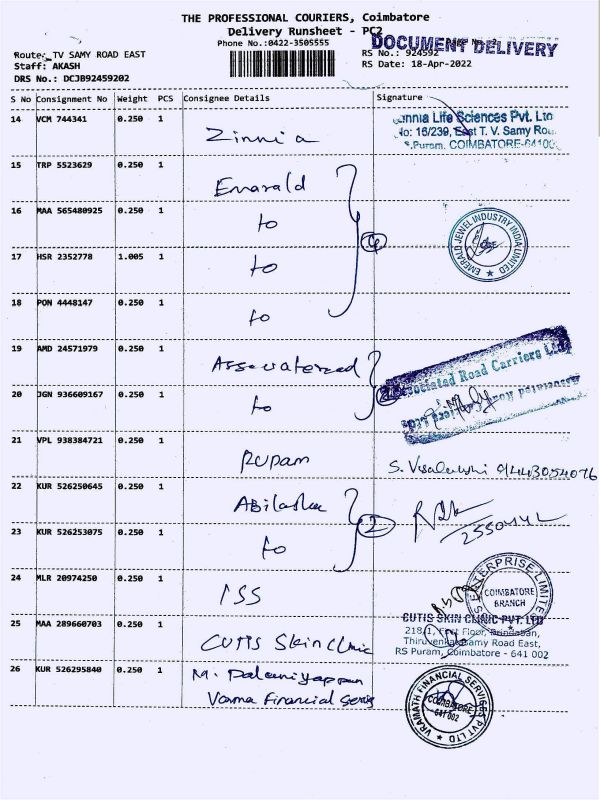 THE PROFESSIONAL COURIERS, Coimbatore
Delivery Runsheet - PC2
Phone No.:0422-3505555
DOCUMENT DELIVERY
Route: TV SAMY ROAD EAST
RS No.: 924592
Staff: AKASH
RS Date: 18-Apr-2022
DRS No.: DCJB92459202
S No Consignment No Weight PCS Consignee Details Signature
14 VCM 744341 0.250 1 Zinnia
nnia Life Sciences Pvt. Ltd
No: 16/239, East T. V. Samy Roa
S.Puram, COIMBATORE-64100
15 TRP 5523629 0.250 1 Emarald
16 MAA 565480925 0.250 1 to
4
EMERALD JEWEL INDUSTRY INDIA LIMITED
17 HSR 2352778 1.005 1 to
18 PON 4448147 0.250 1 to
19 AMD 24571979 0.250 1
Associated Road Carriers Ltd
20 JGN 936609167 0.250 1 to
2
21 VPL 938384721 0.250 1 Rupam
9443054076
22 KUR 526250645 0.250 1
2
23 KUR 526253075 0.250 1 to
24 MLR 20974250 0.250 1 ISS
ENTERPRISE LIMITED
COIMBATORE
BRANCH
25 MAA 289660703 0.250 1 CUTIS Skin Clinic
CUTIS SKIN CLINIC PVT. LTD
218/1, First Floor, Brindavan,
Thiruvenkatasamy Road East,
RS Puram, Coimbatore - 641 002
26 KUR 526295840 0.250 1 M. Palaniyappan
Varma Financial Servis
VRAMATH FINANCIAL SERVICES PVT LTD
COIMBATORE
641 002